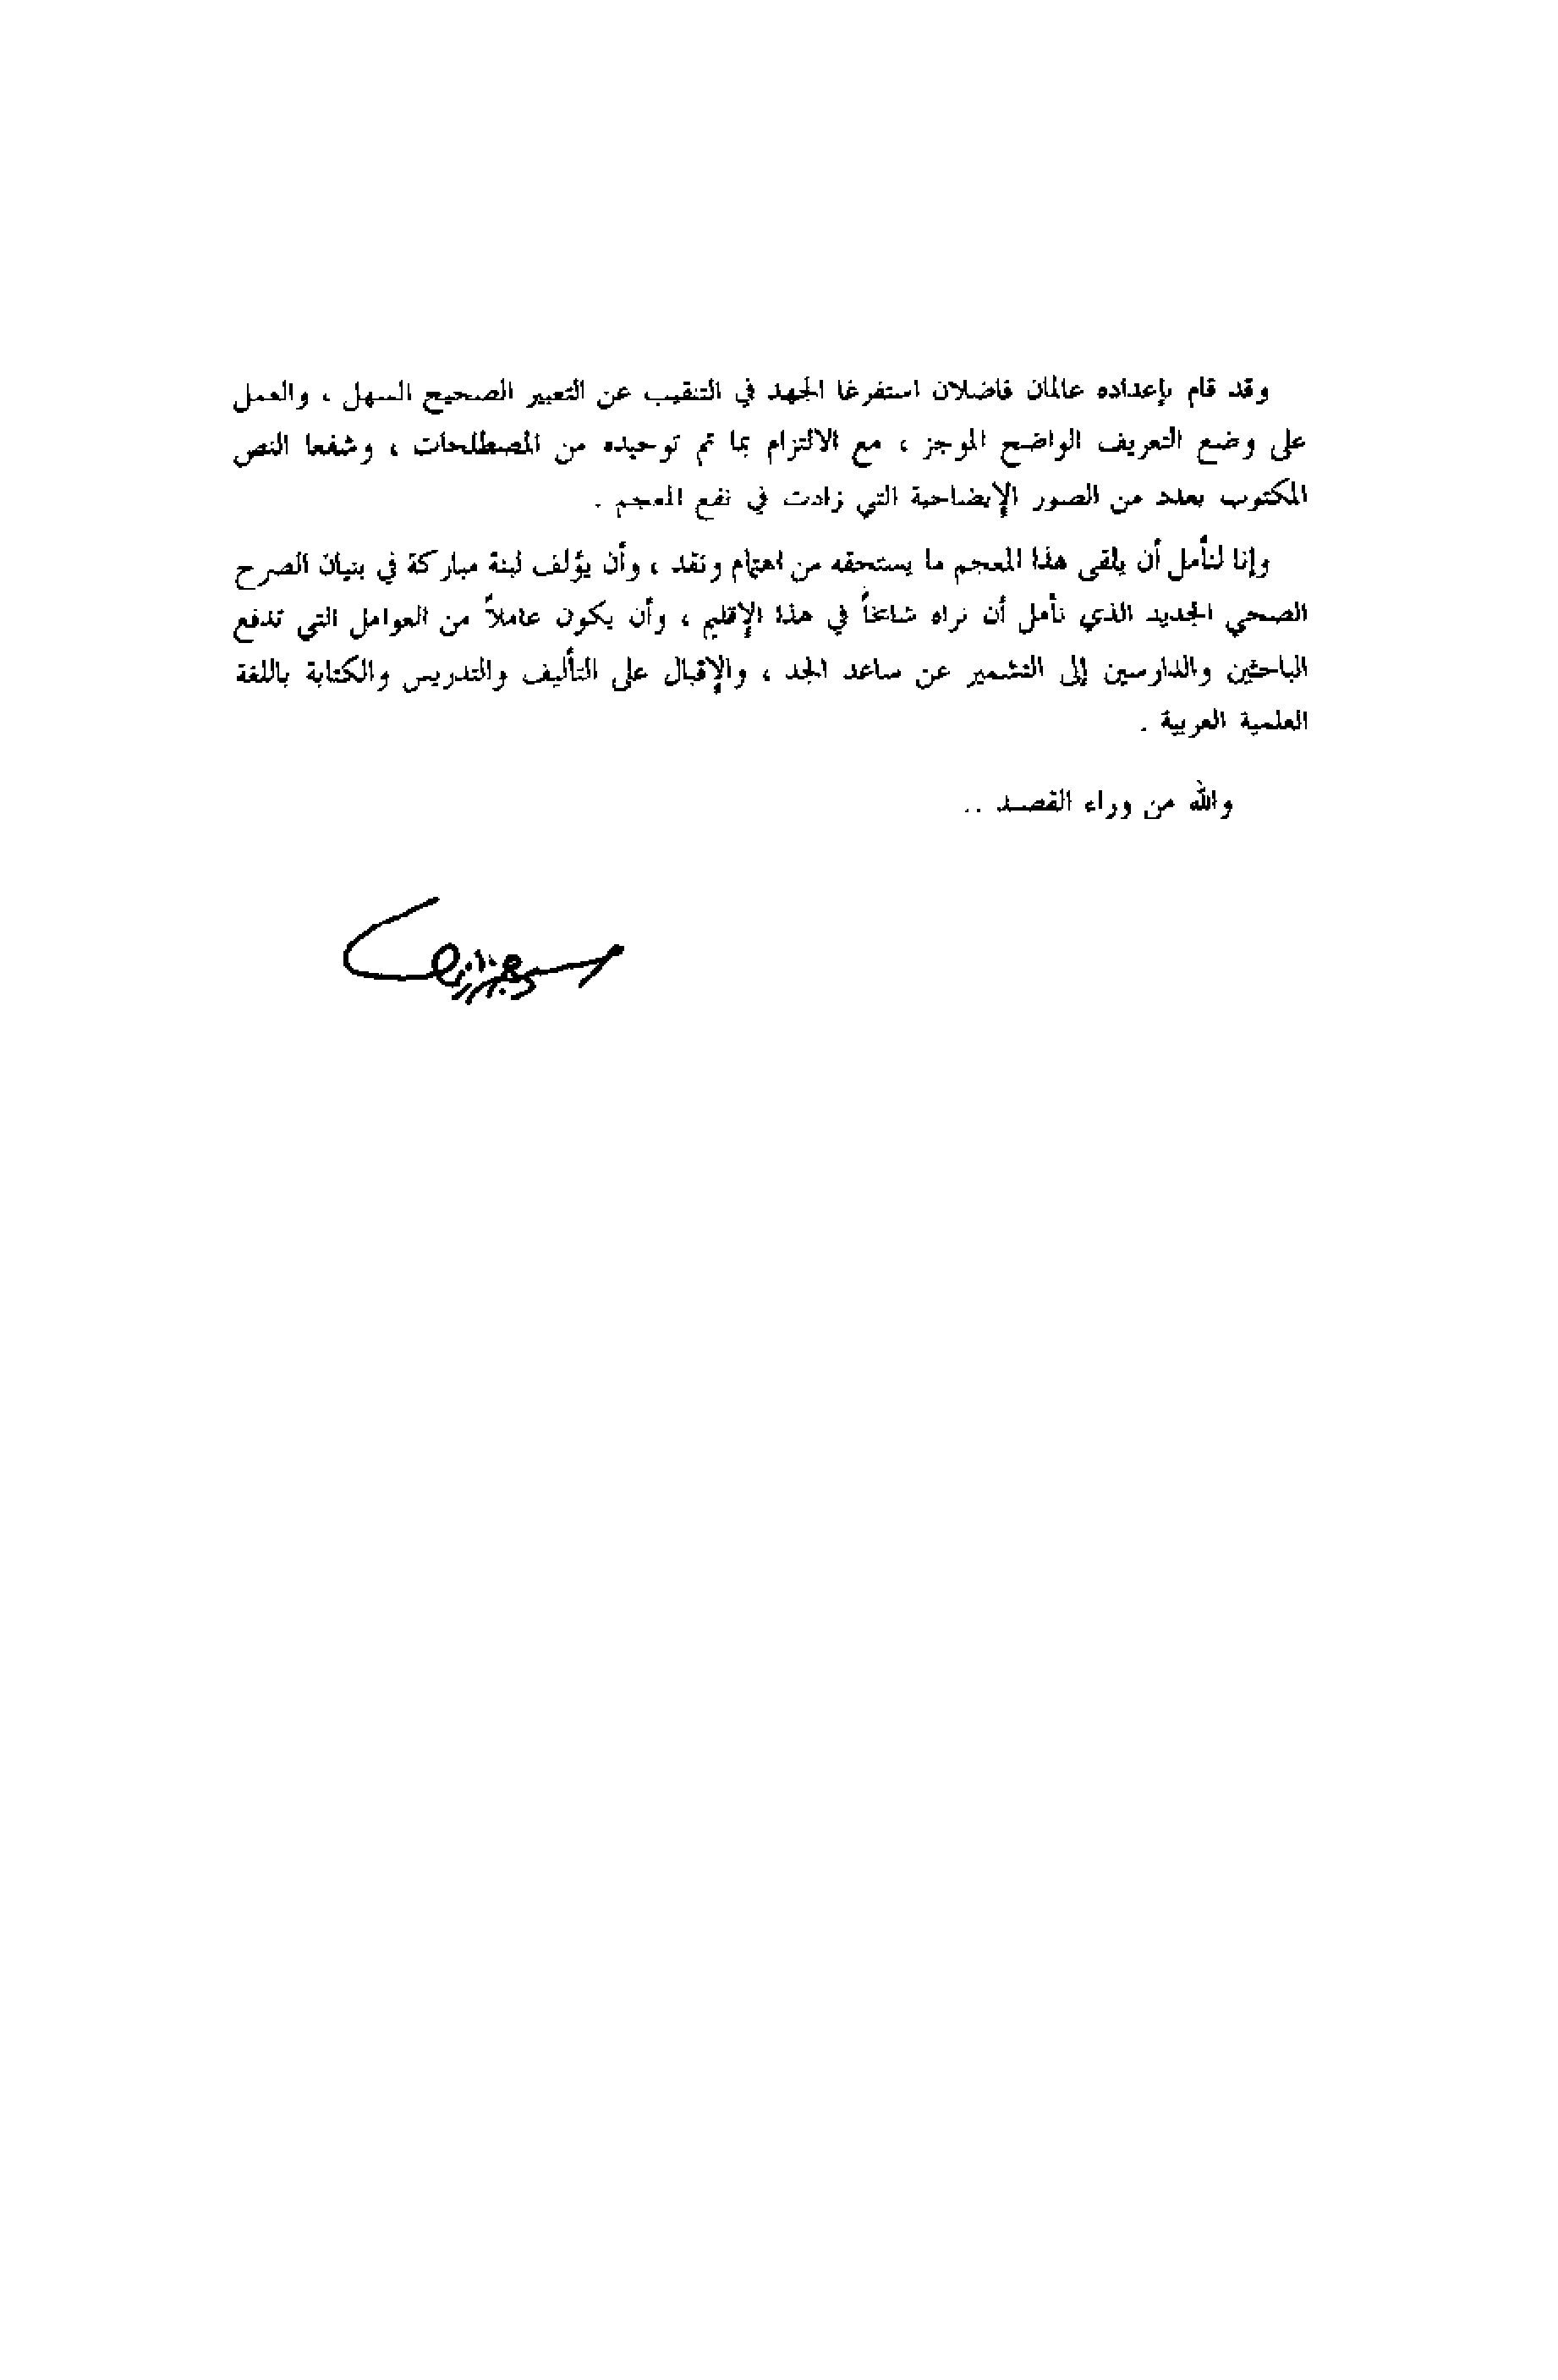 وقد قام بإعداده عالمان فاضلان استفرغا الجهد في التنقيب عن التعبير الصحيح السهل ، والعمل
على وضع التعريف الواضح الموجز ، مع الالتزام بما تم توحيده من المصطلحات ، وشفعا النص
المكتوب بعدد من الصور الإيضاحية التي زادت في نفع المعجم .
وإنا لنأمل أن يلقى هذا المعجم ما يستحقه من اهتمام ونقد ، وأن يؤلف لبنة مباركة في بنيان الصرح
الصحي الجديد الذي نأمل أن نراه شامخاً في هذا الإقليم ، وأن يكون عاملاً من العوامل التي تدفع
الباحثين والدارسين إلى التشمير عن ساعد الجد ، والإقبال على التأليف والتدريس والكتابة باللغة
العلمية العربية .
والله من وراء القصد ..